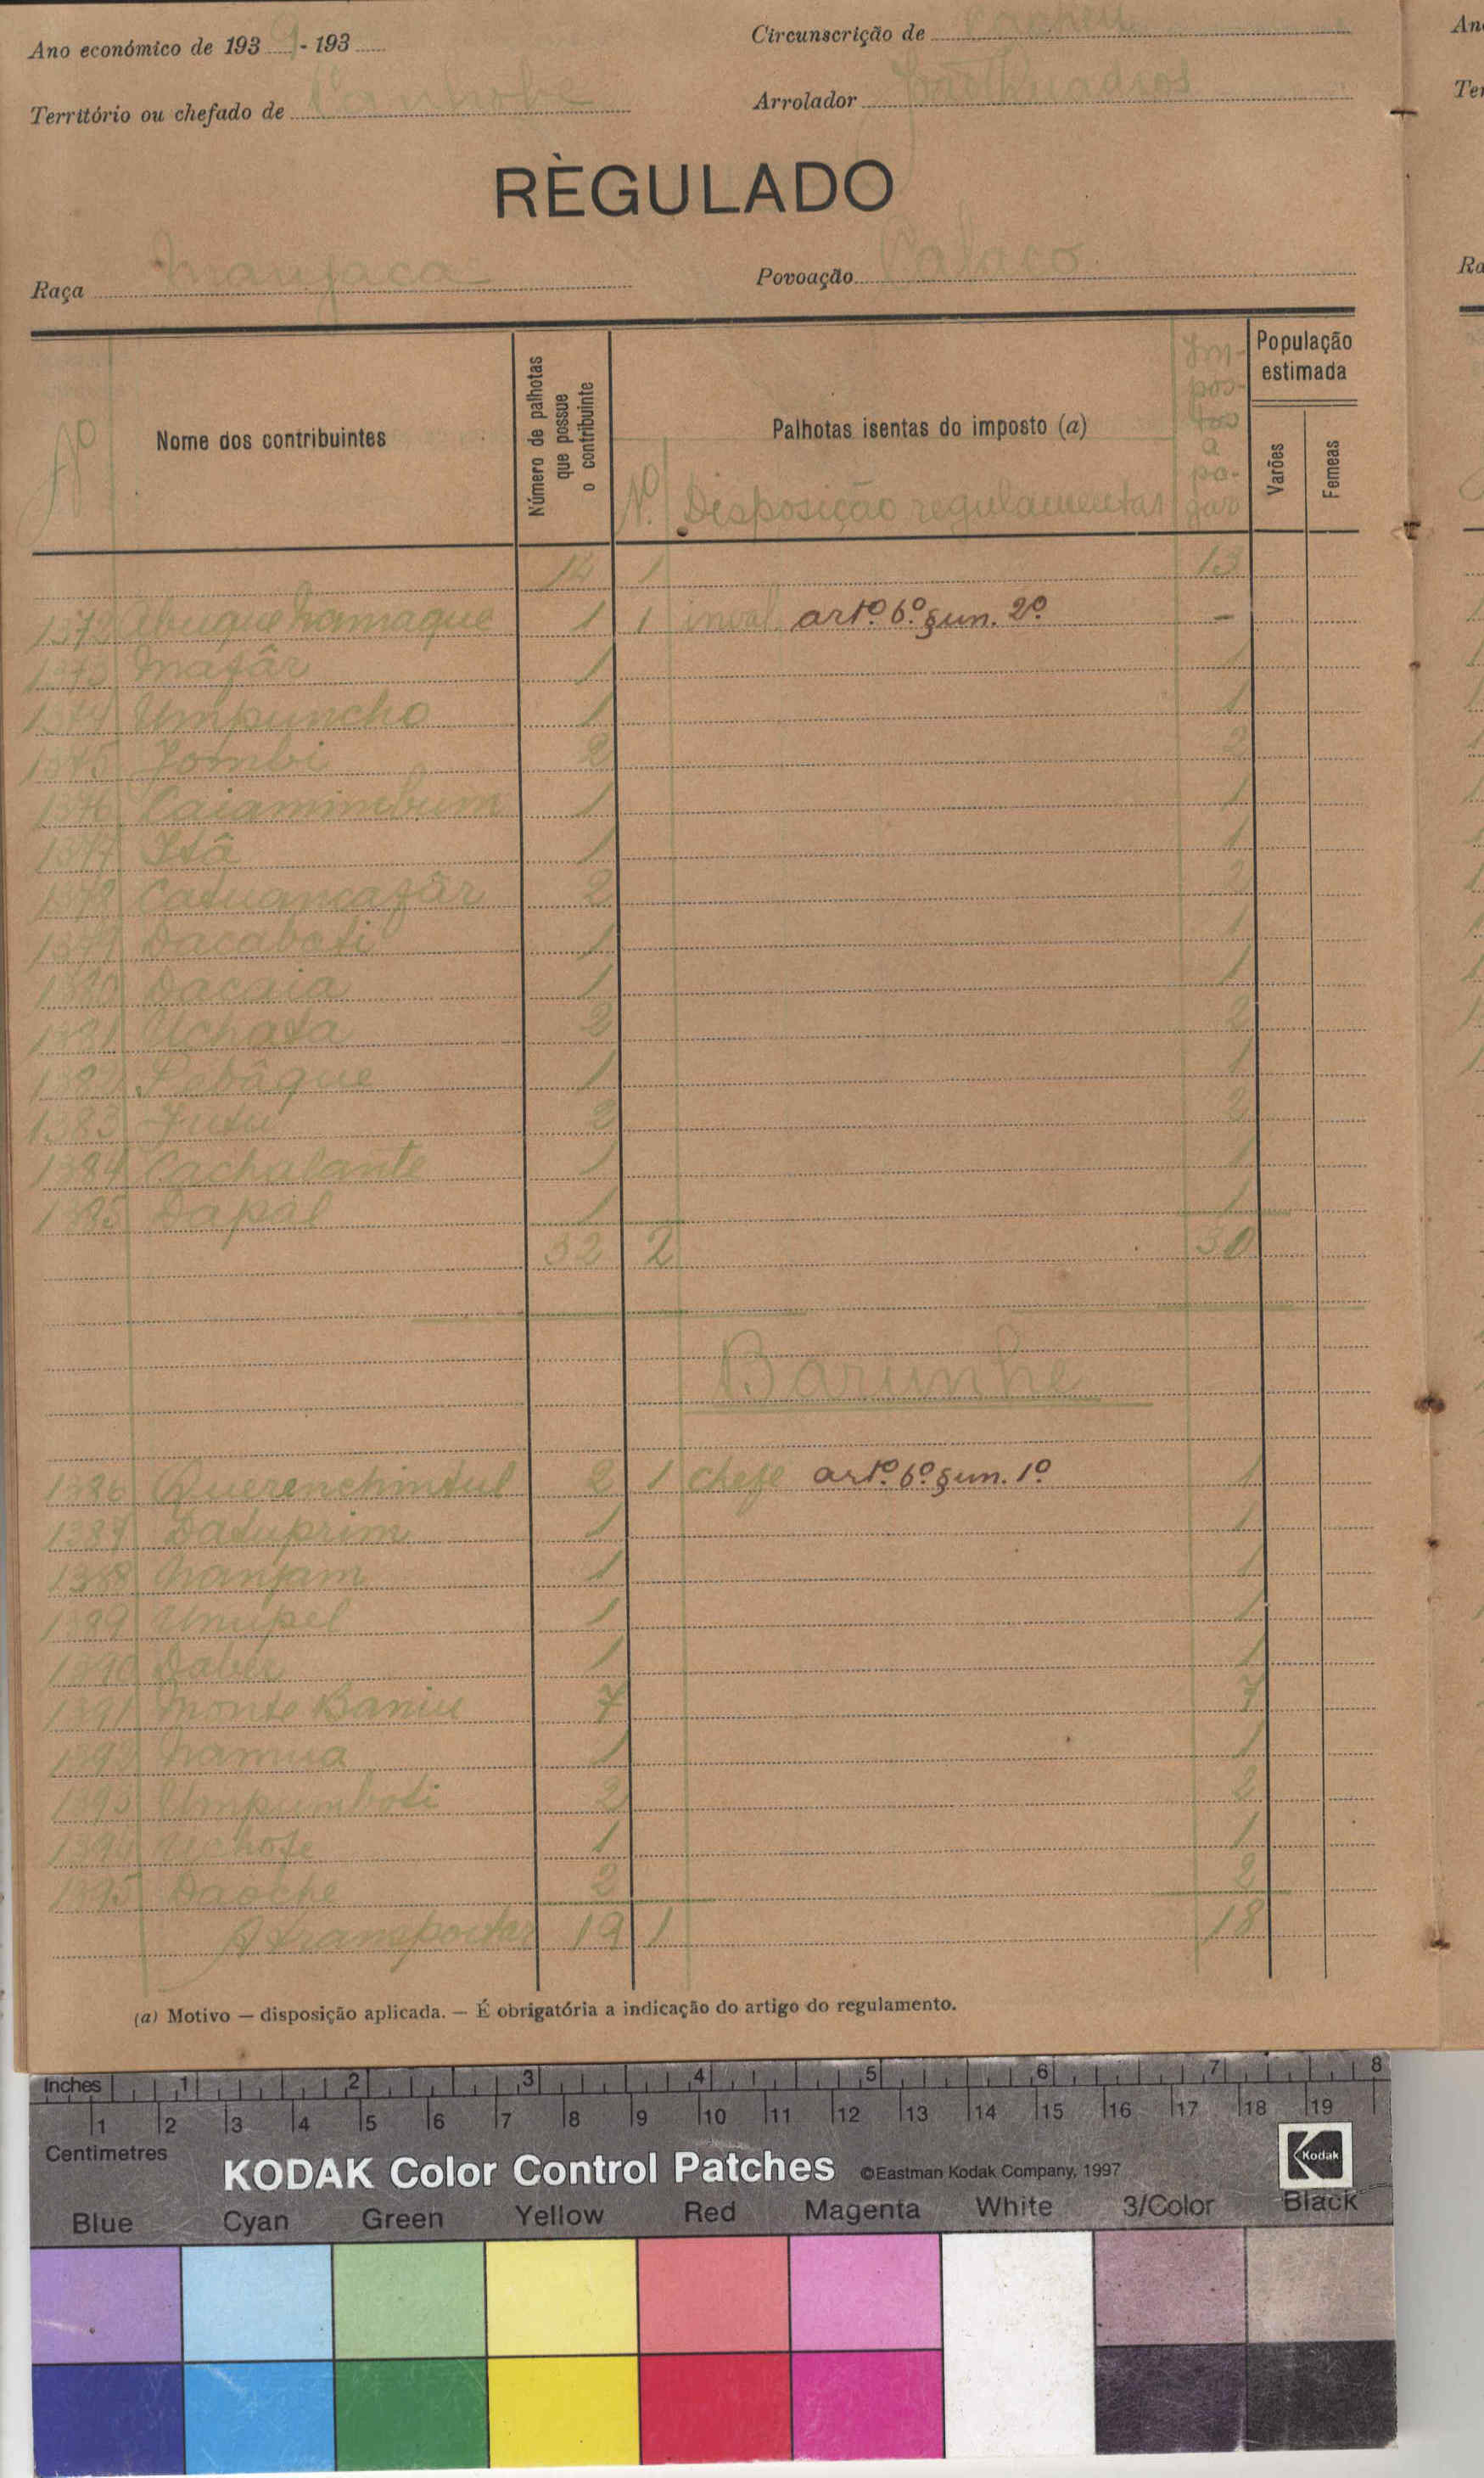 Ano económico de 1939-193
Circunscrição de
Território ou chefado de
Arrolador
RÈGULADO
Raça Manjaca
Povoação
Nº
Nome dos contribuintes
Número de palhotas que possue o contribuinte
Palhotas isentas do imposto (a)
Nº. Disposição regulamentar
Impostos a pagar
População estimada
Varões
Femeas
14 1 13
1372 1 1 inval. artº. 6º. § un. 2º. -
1373 Mafâr 1 1
1374 Umpuncho 1 1
1375 Jombi 2 2
1376 Caiamimbum 1 1
1377 Itâ 1 1
1378 Catuancafâr 2 2
1379 Dacaboti 1 1
1380 Dacaia 1 1
1381 Uchata 2 2
1382 Pebâque 1 1
1383 Jutu 2 2
1384 Cachalante 1 1
1385 Dapal 1 1
32 2 30
Barunhe
1386 Querenchintul 2 1 chefe artº. 6º. § un. 1º 1
1387 Datuprim 1 1
1388 Nanjam 1 1
1389 Unupel 1 1
1390 1 1
1391 Monte Baniu 7 7
1392 Namua 1 1
1393 Umpumboti 2 2
1394 Uchote 1 1
1395 Daoche 2 2
A transportar 19 1 18
(a) Motivo — disposição aplicada. — É obrigatória a indicação do artigo do regulamento.
Inches 1 2 3 4 5 6 7 8
1 2 3 4 5 6 7 8 9 10 11 12 13 14 15 16 17 18 19
Centimetres
KODAK Color Control Patches ©Eastman Kodak Company, 1997 Kodak
Blue Cyan Green Yellow Red Magenta White 3/Color Black